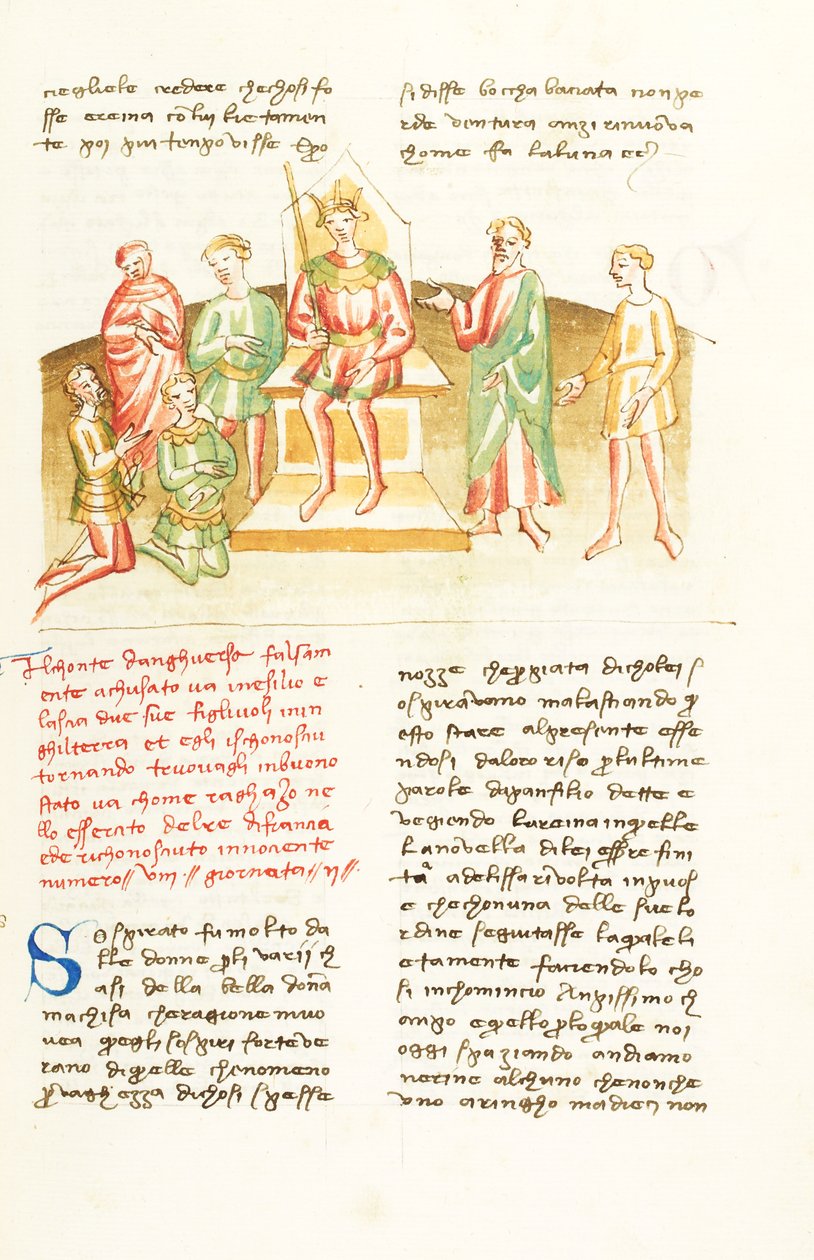 ciegliele credere chechosi fo
sse ereina cō lui lietamen
te poi piu tenpo visse Epero
si disse boccha baciata non pe
rde ventura anzi rinuova
chome fa laluna
Ilchonte danghuersa falsam
ente achusato va inesilio e
lascia due sue figliuoli inin
ghilterra et egli ischonosciu
tornando truovagli inbuono
stato va chome raghazo ne
llo essercito delre difrancia
ede richonosciuto innocente
numero // viii // giornata // ii //
Sospirato fu molto da
lle donne per li varii ch
asi della bella donna
machisa cheragione muo
vea quegli sospiri forse ve
rano diquelle chenomeno
per vaghezza dichosi spesse
nozze chepperpiata dicholei s
ospiravano malasciando qu
esto stare alpresente esse
ndosi daloro riso per lultime
parole dapanfilo dette e
vegiendo lareina inquelle
lanovella dilei essere fini
ta adelissa rivolta inpuos
e chechonuna delle sue lo
rdine seguitasse laquale li
etamente faciendolo cho
si inchomincio Anpissimo ch
anpo equello per lo quale noi
oggi spaziando andiamo
nerine alchuno chenonche
uno aringho madieci non